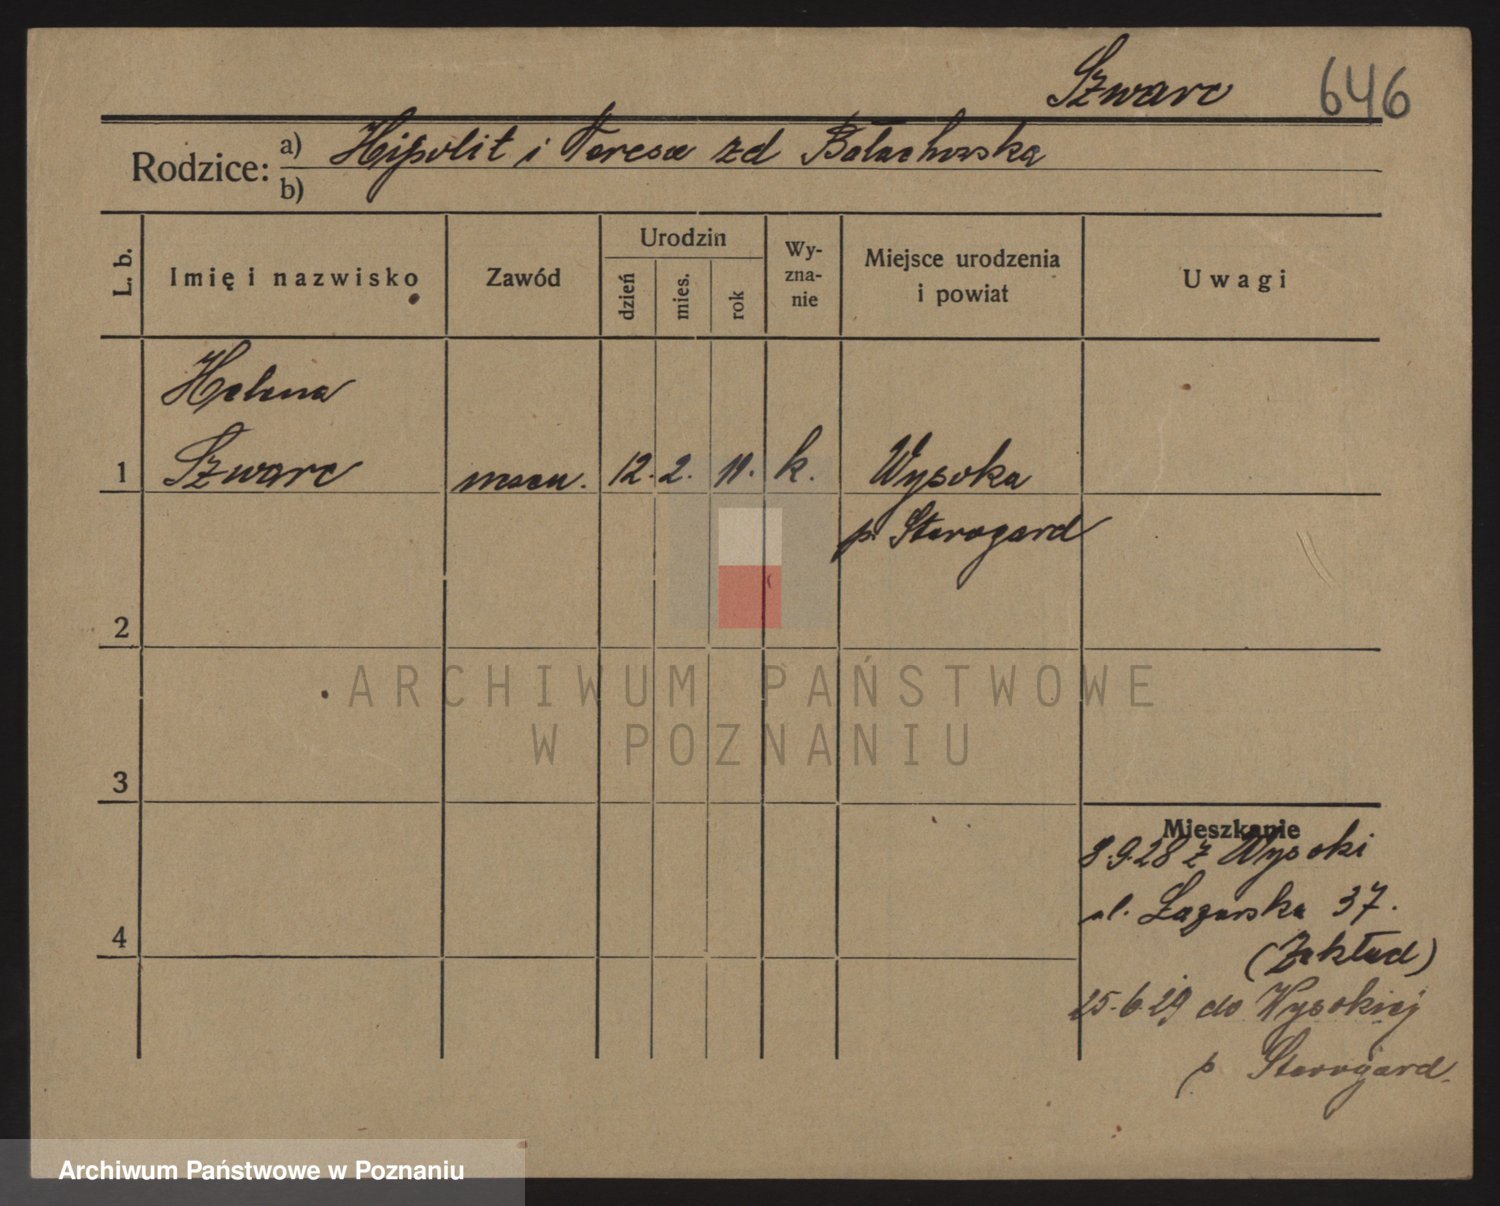 Szwarc 646
Rodzice: a) Hipolit i Teresa zd Bałachowska
b)
L. b. Imię i nazwisko Zawód Urodzin dzień mies. rok Wyznanie Miejsce urodzenia i powiat Uwagi
Helena
1 Szwarc 12. 2. 11. k. Wysoka
p. Starogard
2
ARCHIWUM PAŃSTWOWE
W POZNANIU
3
Mieszkanie
8.9.28 z Wysoki
ul. 37.
4
(Zakład)
25.6.29 do Wysokiej
p Starogard.
Archiwum Państwowe w Poznaniu